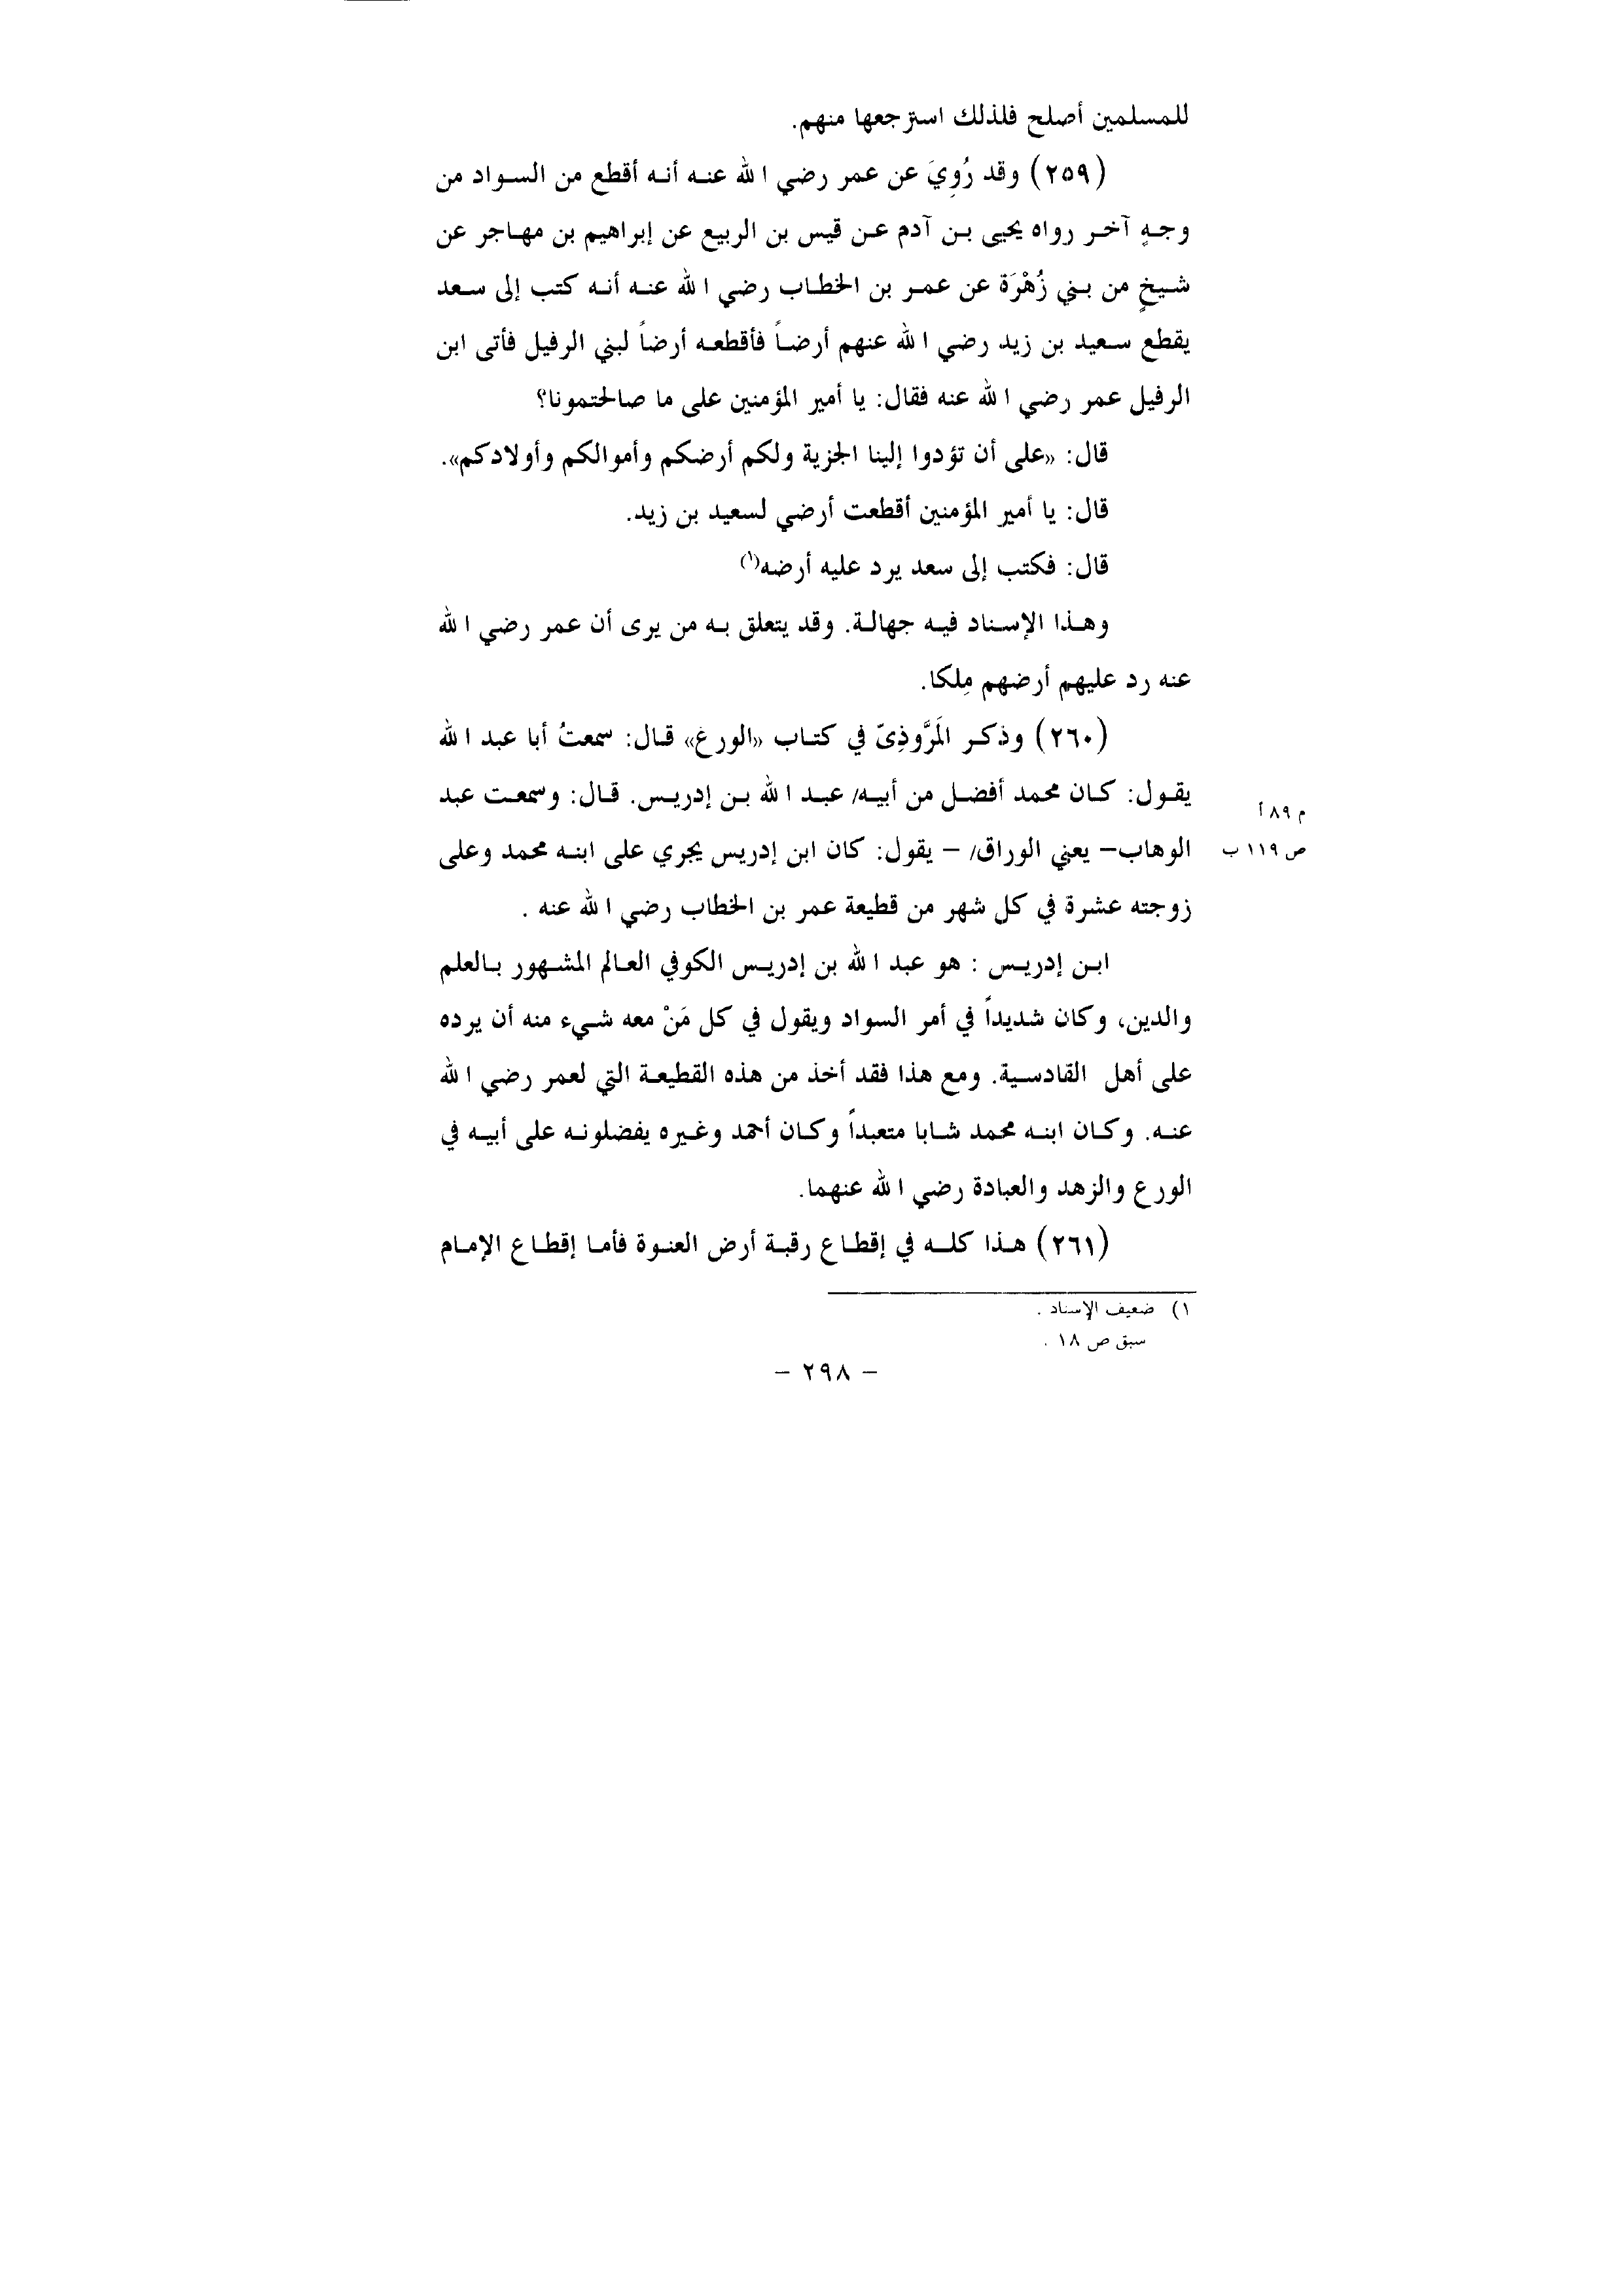 للمسلمين أصلح فلذلك استرجعها منهم.
(٢٥٩) وقد رُوِيَ عن عمر رضي الله عنه أنه أقطع من السواد من
وجهٍ آخر رواه يحيى بن آدم عن قيس بن الربيع عن إبراهيم بن مهاجر عن
شيخٍ من بني زُهْرَة عن عمر بن الخطاب رضي الله عنه أنه كتب إلى سعد
يقطع سعيد بن زيد رضي الله عنهم أرضاً فأقطعه أرضاً لبني الرفيل فأتى ابن
الرفيل عمر رضي الله عنه فقال: يا أمير المؤمنين على ما صالحتمونا؟
قال: «على أن تؤدوا إلينا الجزية ولكم أرضكم وأموالكم وأولادكم».
قال: يا أمير المؤمنين أقطعت أرضي لسعيد بن زيد.
قال: فكتب إلى سعد يرد عليه أرضه(١)
وهذا الإسناد فيه جهالة. وقد يتعلق به من يرى أن عمر رضي الله
عنه رد عليهم أرضهم مِلكا.
(٢٦٠) وذكر المَرَّوذِىّ في كتاب «الورع» قال: سمعتُ أبا عبد الله
يقول: كان محمد أفضل من أبيه/ عبد الله بن إدريس. قال: وسمعت عبد
م ٨٩ أ
الوهاب– يعني الوراق/ – يقول: كان ابن إدريس يجري على ابنه محمد وعلى
ص ١١٩ ب
زوجته عشرة في كل شهر من قطيعة عمر بن الخطاب رضي الله عنه .
ابن إدريس : هو عبد الله بن إدريس الكوفي العالم المشهور بالعلم
والدين، وكان شديداً في أمر السواد ويقول في كل مَنْ معه شيء منه أن يرده
على أهل القادسية. ومع هذا فقد أخذ من هذه القطيعة التي لعمر رضي الله
عنه. وكان ابنه محمد شابا متعبداً وكان أحمد وغيره يفضلونه على أبيه في
الورع والزهد والعبادة رضي الله عنهما.
(٢٦١) هذا كله في إقطاع رقبة أرض العنوة فأما إقطاع الإمام
١) ضعيف الإسناد .
سبق ص ١٨ .
– ٢٩٨ –